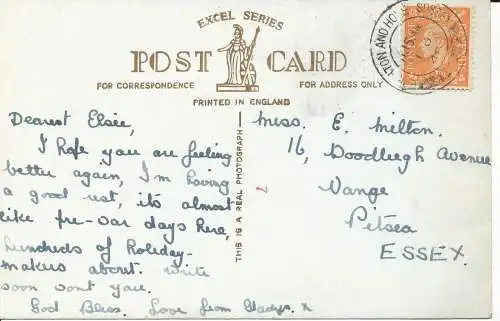 EXCEL SERIES
POST CARD
FOR CORRESPONDENCE
FOR ADDRESS ONLY
PRINTED IN ENGLAND
THIS IS A REAL PHOTOGRAPH
Dearest Elsie,
I hope you are feeling
better again, I'm having
a good rest, its almost
like pre-war days here,
hundreds of Holiday-
makers about. write
soon wont you.
God Bless. Love from Gladys. x
Miss. E. Milton.
16, Woodleigh Avenue
Vange
Pitsea
ESSEX.
AND HOVE SUSSEX